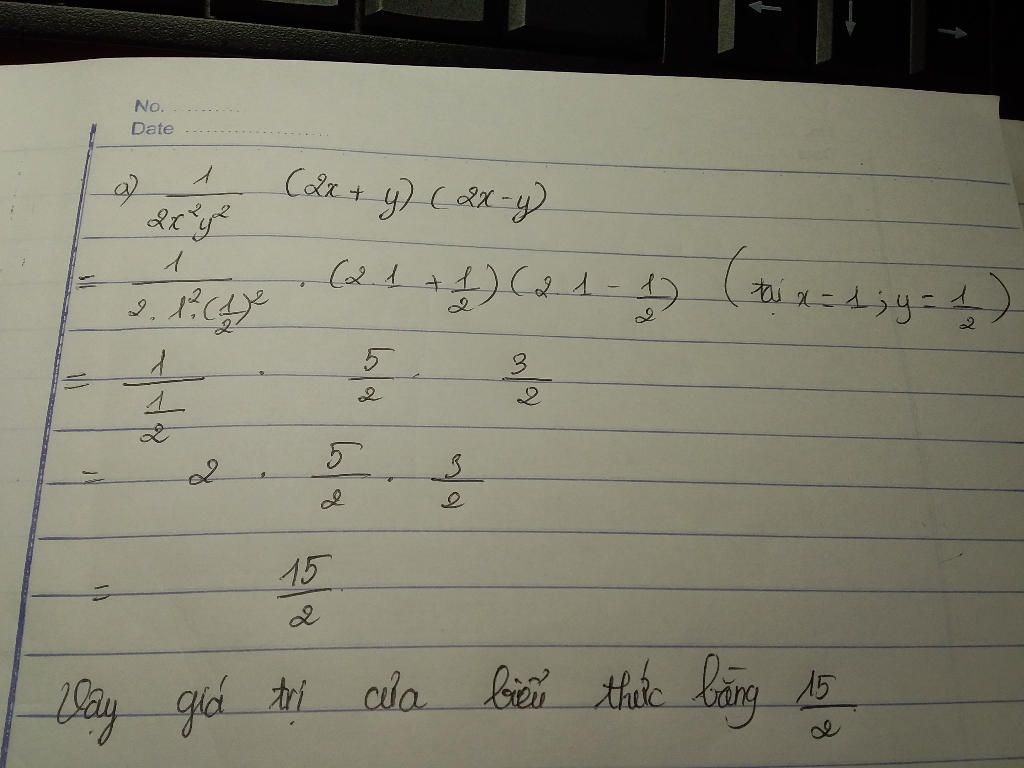 No. ............
Date ........................
a) \frac{1}{2x^2y^2} (2x + y) ( 2x - y)
= \frac{1}{2 . 1^2 . (\frac{1}{2})^2} . (2.1 + \frac{1}{2}) (2 1 - \frac{1}{2}) (tại x = 1 ; y = \frac{1}{2})
= \frac{1}{\frac{1}{2}} . \frac{5}{2} . \frac{3}{2}
= 2 . \frac{5}{2} . \frac{3}{2}
= \frac{15}{2}
Vậy giá trị của biểu thức bằng \frac{15}{2}